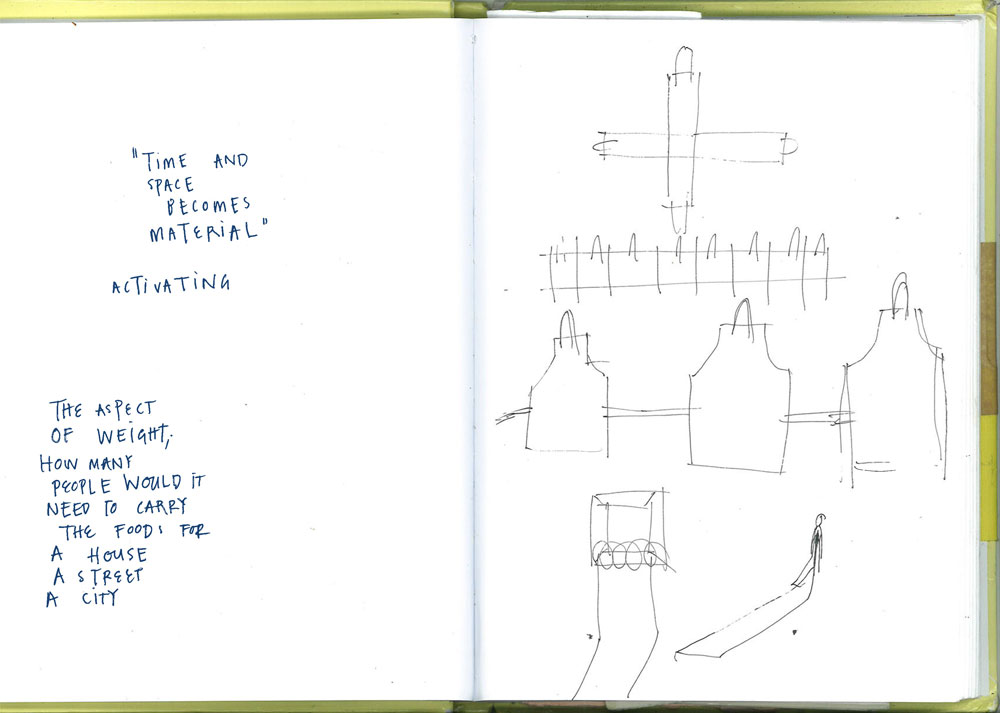 "TIME AND
SPACE
BECOMES
MATERIAL"
ACTIVATING
THE ASPECT
OF WEIGHT,
HOW MANY
PEOPLE WOULD IT
NEED TO CARRY
THE FOOD: FOR
A HOUSE
A STREET
A CITY